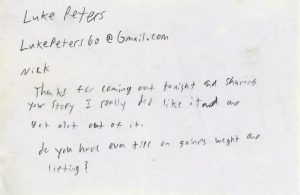 Luke Peters
LukePeters60@Gmail.com
Nick
Thanks for coming out tonight and sharing
your story I really did like it and am
got alot out of it.
do you have even tips on gaining weight and
lifting?